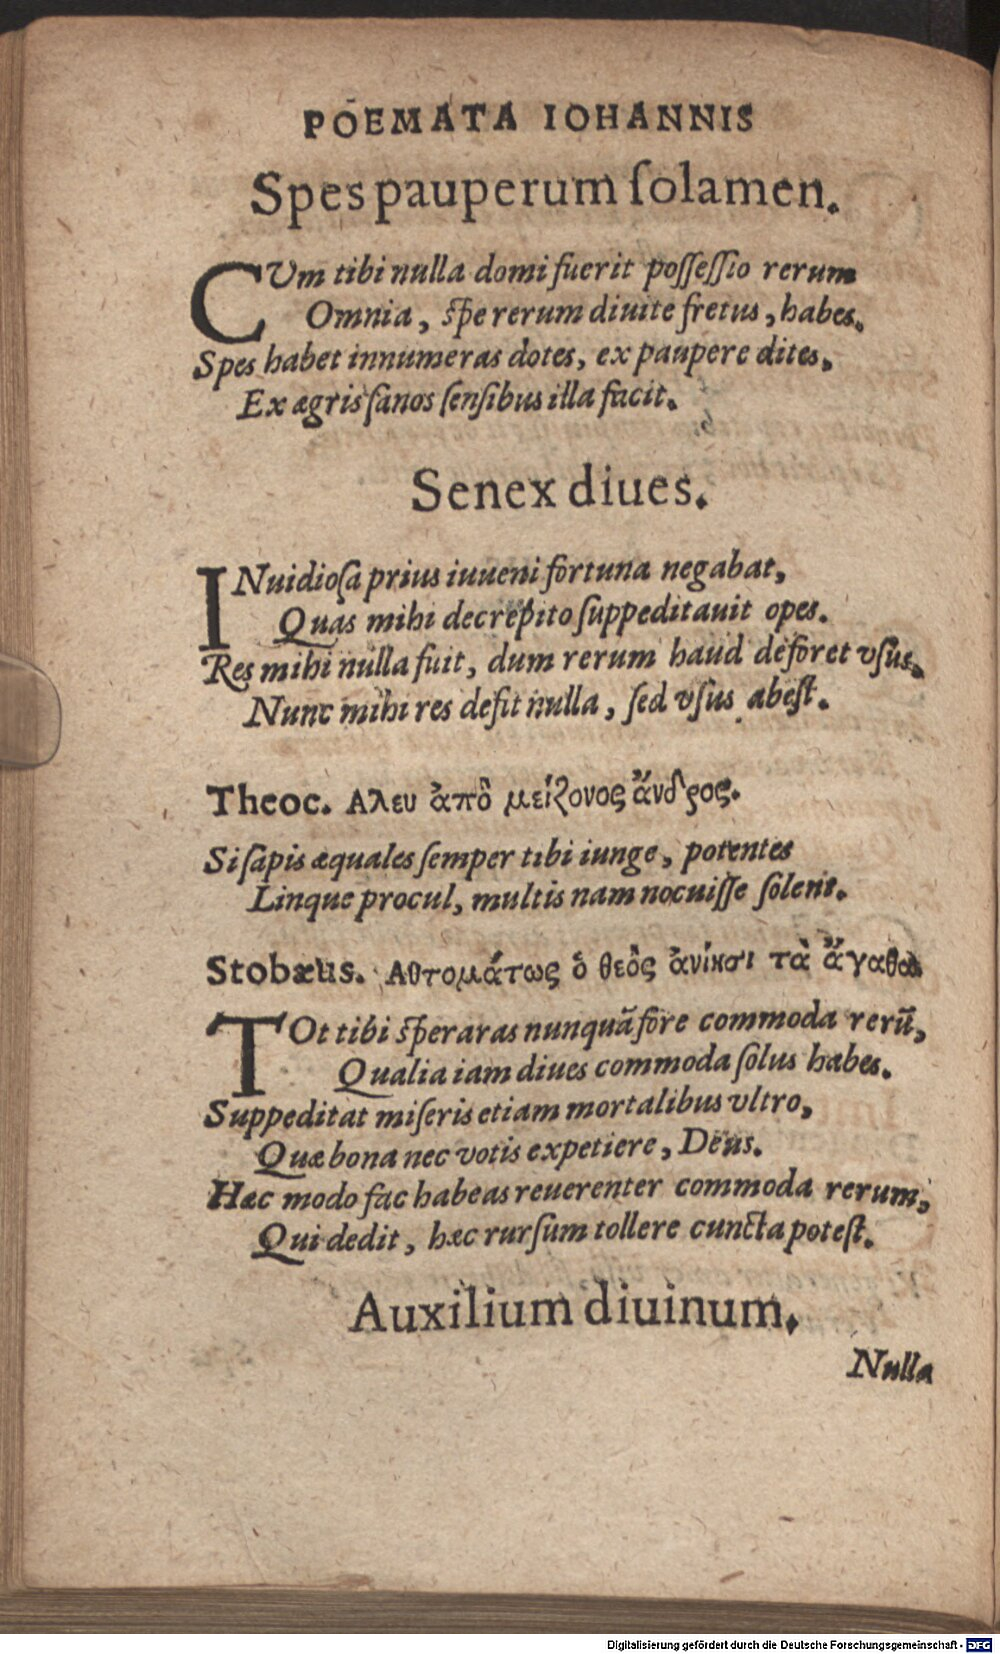 POEMATA IOHANNIS
Spes pauperum ſolamen.
CVm tibi nulla domi fuerit poſſeſſio rerum
Omnia, ſpe rerum diuite fretus, habes.
Spes habet innumeras dotes, ex paupere dites,
Ex ægris ſanos ſenſibus illa facit.
Senex diues.
INuidioſa prius iuueni fortuna negabat,
Quas mihi decrepito ſuppeditauit opes.
Res mihi nulla fuit, dum rerum haud deforet vſus,
Nunc mihi res defit nulla, ſed vſus abeſt.
Theoc. Αλευ ἀπὸ μείζονος ἄνδρος.
Si ſapis æquales ſemper tibi iunge, potentes
Linque procul, multis nam nocuiſſe ſolent.
Stobæus. Αθτομάτως ὁ θεὸς ἀνίησι τὰ ἄγαθα
TOt tibi ſperaras nunquã fore commoda rerũ,
Qualia iam diues commoda ſolus habes.
Suppeditat miſeris etiam mortalibus vltro,
Quæ bona nec votis expetiere, Deus.
Hæc modo fac habeas reuerenter commoda rerum,
Qui dedit, hæc rurſum tollere cuncta poteſt.
Auxilium diuinum.
Nulla
Digitalisierung gefördert durch die Deutsche Forschungsgemeinschaft - DFG